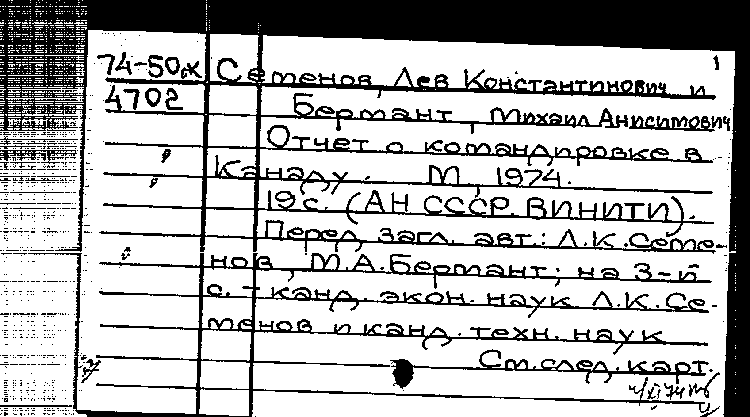 1
74-50ск Семенов, Лев Константинович и
4702 Бермант, Михаил Анисимович
Отчет о командировке в
Канаду. М., 1974.
19 с. (АН СССР. ВИНИТИ).
Перед загл. авт.: Л.К.Семе-
нов, М.А.Бермант; на 3-й
с. - канд. экон. наук Л.К.Се-
менов и канд. техн. наук
См. след. карт.